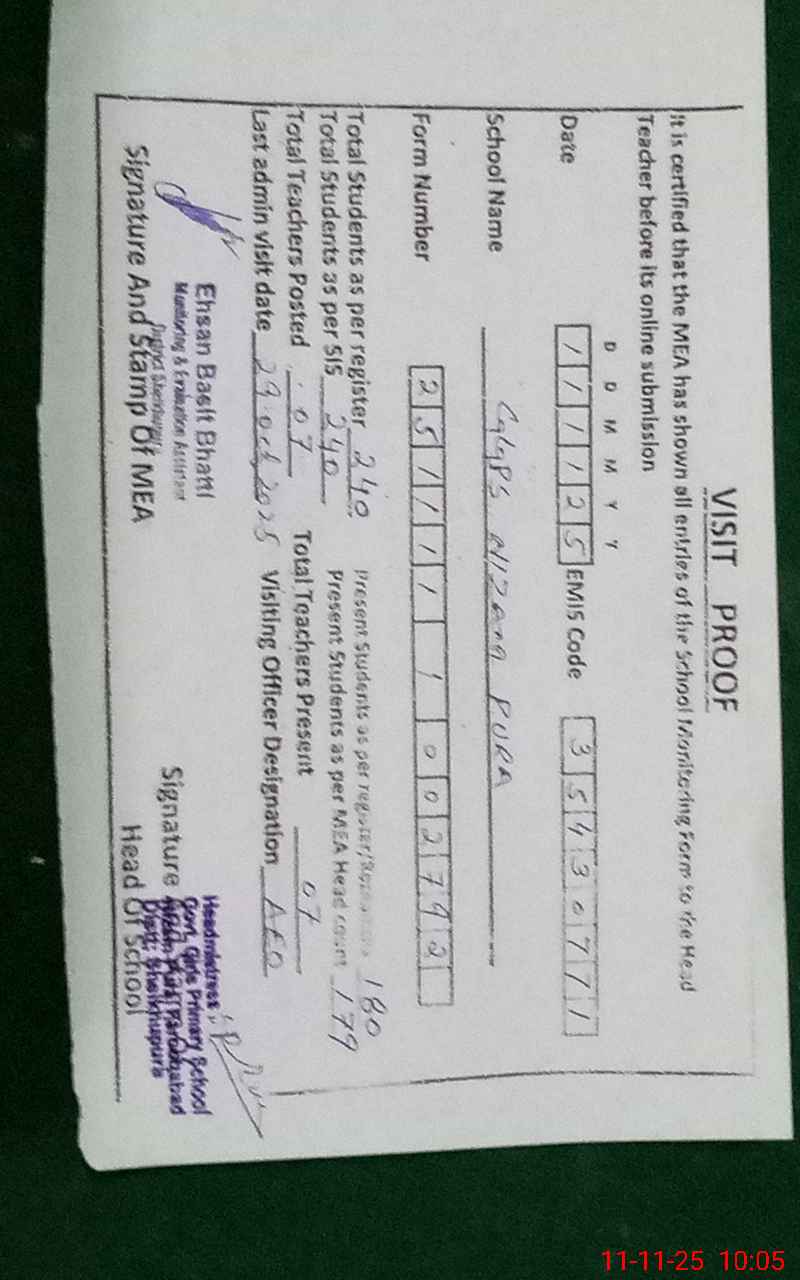 VISIT PROOF
It is certified that the MEA has shown all entries of the School Monitoring Form to the Head
Teacher before its online submission
D D M M Y Y
Date 1 1 1 1 2 5 EMIS Code 3 5 4 3 0 7 7 1
School Name GGPS NIZAM PURA
Form Number 2 5 1 1 1 1 1 0 0 2 7 9 2
Total Students as per register 240 Present Students as per register/ 180
Total Students as per SIS 240 Present Students as per MEA Head count 179
Total Teachers Posted 07 Total Teachers Present 07
Last admin visit date 29 oct 2025 Visiting Officer Designation AEO
Ehsan Basit Bhatti
Monitoring & Evaluation Assistant
District Sheikhupura
Signature And Stamp Of MEA
Headmistress
Govt. Girls Primary School
Farooqabad
Distt. Sheikhupura
Signature
Head Of School
11-11-25 10:05